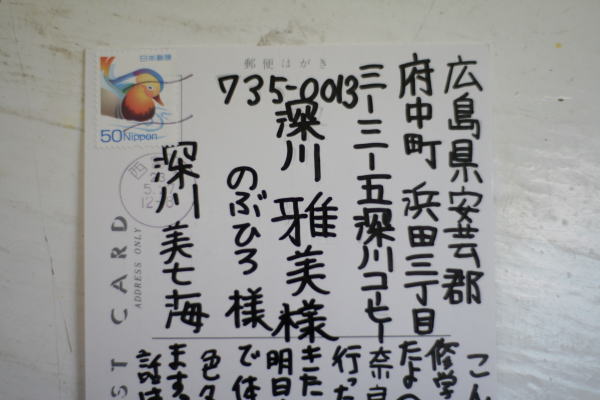 日本郵便
50 Nippon
郵便はがき
735-0013
広島県安芸郡
府中町 浜田三丁目
三-三-五深川コーヒー
深川 雅美様
のぶひろ 様
深川 美七海
ST CARD
ADDRESS ONLY
こん
修学
たよの
奈良
行った
きた
明日
で体
色々
ます
話は